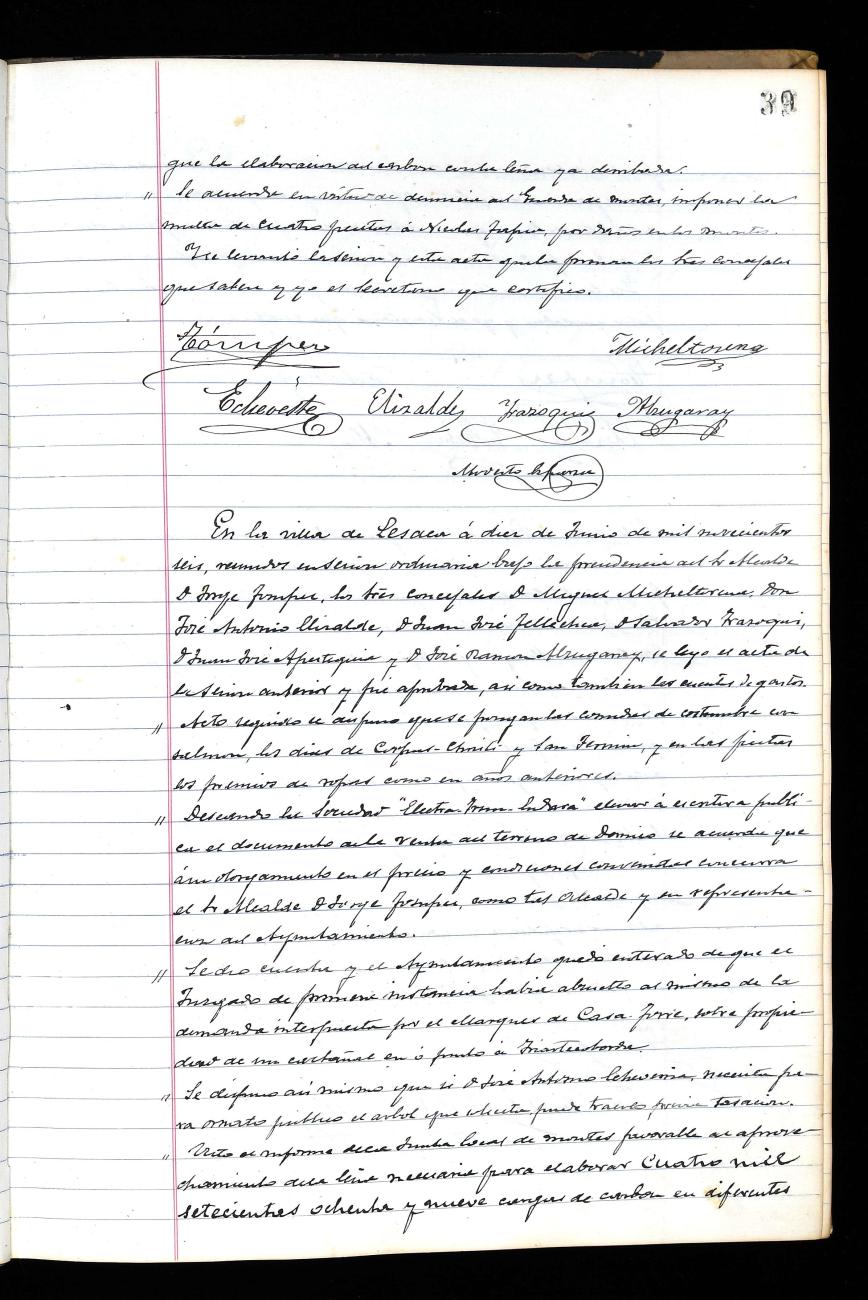 39
que la elaboracion del carbon con la leña ya derribada.
" Se acuerda en virtud de denuncia del Guarda de montes, imponer la
multa de cuatro pesetas á Nicolas Tapia, por daños en los montes.
Y se levantó la sesion y esta acta que la firman los tres concejales
que saben y yo el Secretario que certifico.
Tómper Micheltorena
Echeveste Elizalde Yrazoqui Alzugaray
Modesto Esparza
En la villa de Lesaca á diez de Junio de mil novecientos
seis, reunidos en sesion ordinaria bajo la presidencia del Sr Alcalde
D Jorje Tomper, los tres concejales D Miguel Micheltorena, Don
José Antonio Elizalde, D Juan José Tellechea, D Salvador Yrazoqui,
D Juan José Apezteguia y D José Ramon Alzugaray, se leyo el acta de
la sesion anterior y fué aprobada, asi como tambien las cuentas de gastos.
" Acto seguido se dispuso que se pongan las comidas de costumbre con
salmon, los dias de Corpus-Christi y San Fermin, y en las fiestas
los premios de sopas como en años anteriores.
" Deseando la Sociedad "Electra-Irun-Endara" elevar á escritura publi-
ca el documento de la venta del terreno de Domico se acuerda que
á su otorgamiento en el precio y condiciones convenidas concurra
el Sr Alcalde D Jorje Tomper, como tal Alcalde y en representa-
cion del Ayuntamiento.
" Se dio cuenta y el Ayuntamiento quedó enterado de que el
Juzgado de primera instancia habia absuelto al mismo de la
demanda interpuesta por el Marques de Casa-Torre, sobre propie-
dad de un castañal en ó junto á
" Se dispuso asi mismo que si D José Antonio Echeverria, necesita pa-
ra ornato publico el arbol que solicita, puede traerlo previa tasacion.
" Visto el informe de la Junta local de montes favorable al aprove-
chamiento de la leña necesaria para elaborar Cuatro mil
setecientas ochenta y nueve cargas de carbon en diferentes